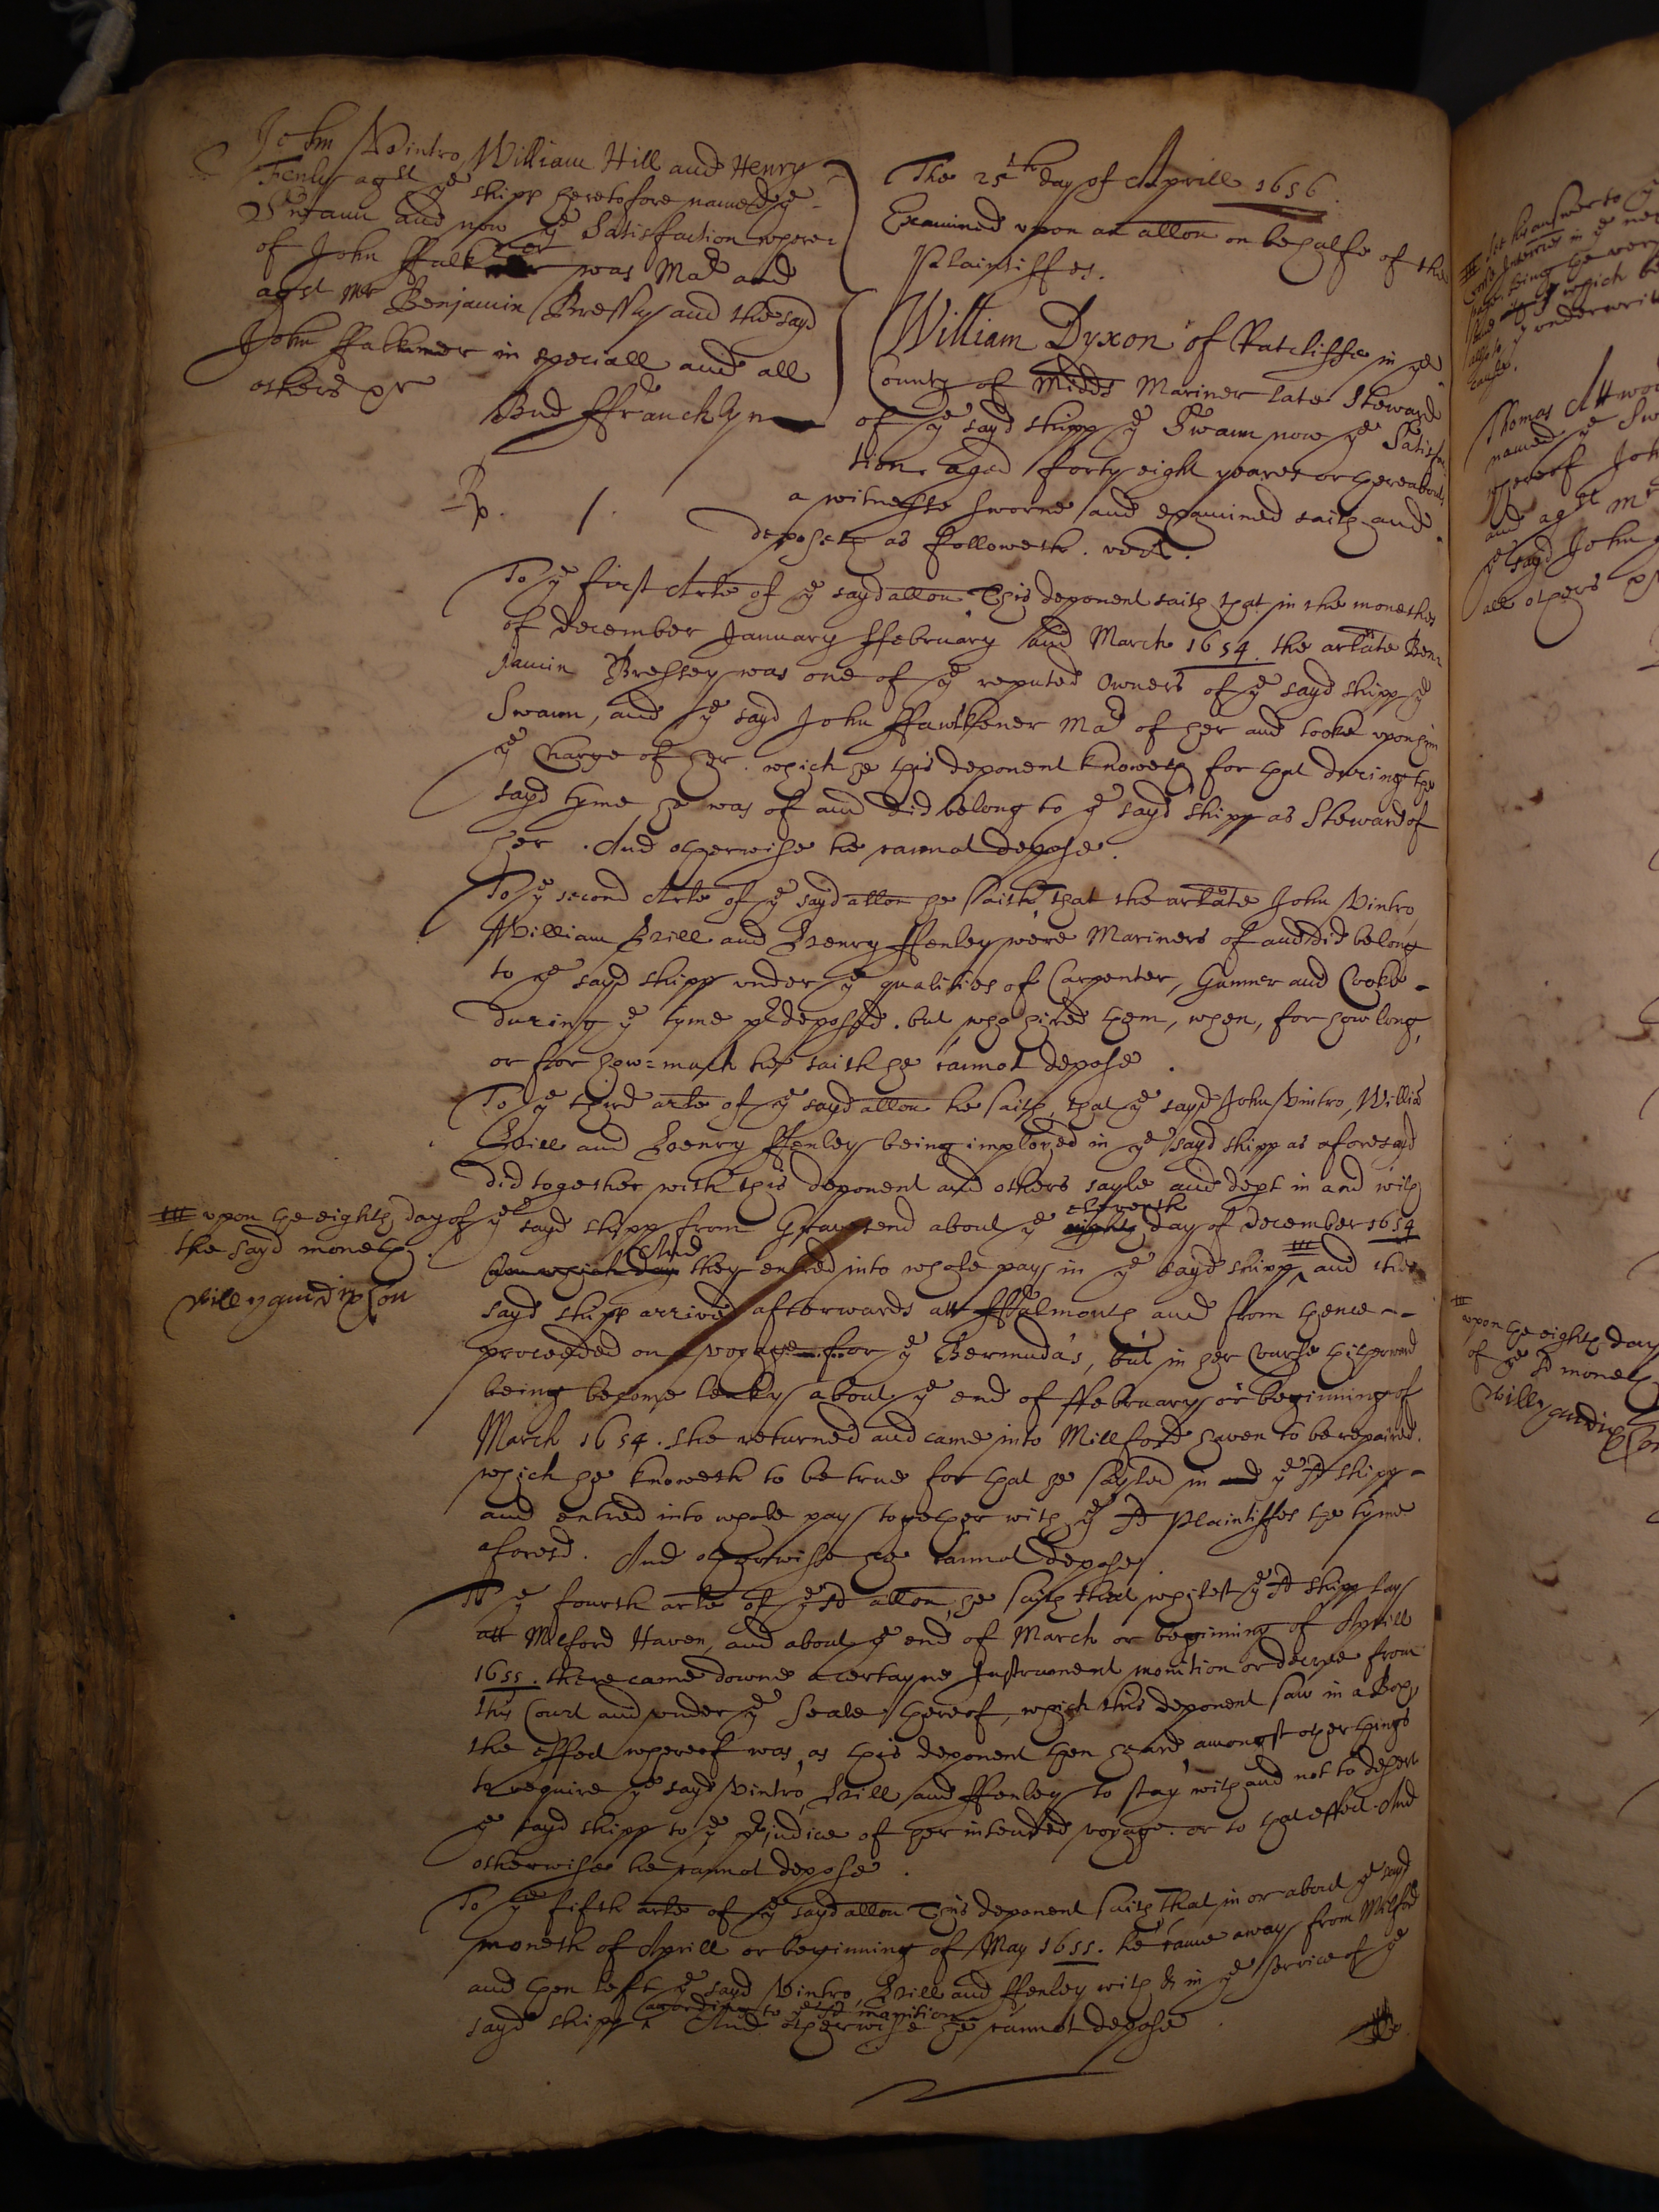 John Vintro, William Hill and Henry
Fenly agst ye shipp heretofore named ye
Swann and now ye Satisfaction where
of John Ffalkner was Mar and
agst Mr Benjamin Bressy and the sayd
John Ffalkner in speciall and all
others &c
Bud Ffrancklyn
The 25th day of Aprill 1656.
Examined upon an allon on behalfe of the
Plaintiffes.
Rp. 1.
William Dyxon of Ratcliffe in ye
County of Midds Mariner late Steward
of ye sayd shipp ye Swann now ye Satisfac
tion aged forty eight yeares or thereabouts
a witnesse sworne and examined saith and
deposeth as followeth. vizt.
To ye first Arte of ye sayd allon This deponent saith that in the moneths
of December January Ffebruary and March 1654. the arlate Ben=
jamin Bressey was one of ye reputed Owners of ye sayd shipp ye
Swann, and ye sayd John Ffawlkener Mar of her and tooke upon him
ye Charge of her. which he this deponent knoweth for that during the
sayd tyme he was of and did belong to ye sayd shipp as Steward of
her. And otherwise he cannot depose.
To ye second Arte of ye sayd allon he saith that the arlate John Vintro,
William Hill and Henry Ffenley were Mariners of and did belong
to ye sayd shipp under ye qualities of Carpenter, Gunner and Cooke -
during ye tyme predeposed. but who hired them, when, for how long,
or for how=much he saith he cannot depose.
To ye third arte of ye sayd allon he saith, that ye sayd John Vintro, Willia
Hill and Henry Ffenley being imployed in ye sayd shipp as aforesayd
did together with this deponent and others sayle and dept in and with
ye sayd shipp from Gravesend about ye eighth eleventh day of December 1654
upon which day And they entred into whole pay in ye sayd shipp, and the
upon the eighth day of
the sayd moneth.
Willyam dixson
sayd shipp arrived afterwards att Ffalmouth and from thence --
proceeded on a voyage for ye Bermuda's, but in her Course thitherward
being become leaky about ye end of Ffebruary or beginning of
March 1654. she returned and came into Millford haven to be repaired.
which he knoweth to be true for that he sayled in ye sd shipp -
and entred into whole pay together with ye sd Plaintiffes the tyme
aforesd. And otherwise he cannot depose.
To ye fourth arte of ye sd allon he saith that whilest ye sd shipp lay
att Milford Haven, and about ye end of March or beginning of Aprill
1655. there came downe a certayne Instrument monition or decree from
this Court and under ye Seale thereof, which this deponent saw in a Box,
the effect whereof was, as this deponent then heard, amongst other things
to require ye sayd Vintro, Hill and Ffenley to stay with and not to desert
ye sayd shipp to ye prejudice of her intended voyage. or to that effect. And
otherwise he cannot depose.
To ye fifth arte of ye sayd allon This deponent saith That in or about ye sayd
moneth of Aprill or beginning of May 1655. he came away from Milford
and then left ye sayd Vintro, Hill and Ffenley with & in ye service of ye
sayd shipp according to ye sd monition. And otherwise he cannot depose.
upon the eighth day
of ye sd moneth
Willyam dixson
Thomas Attwood
named ye Sw
whereof Joh
and agst Mr
ye sayd John
all others